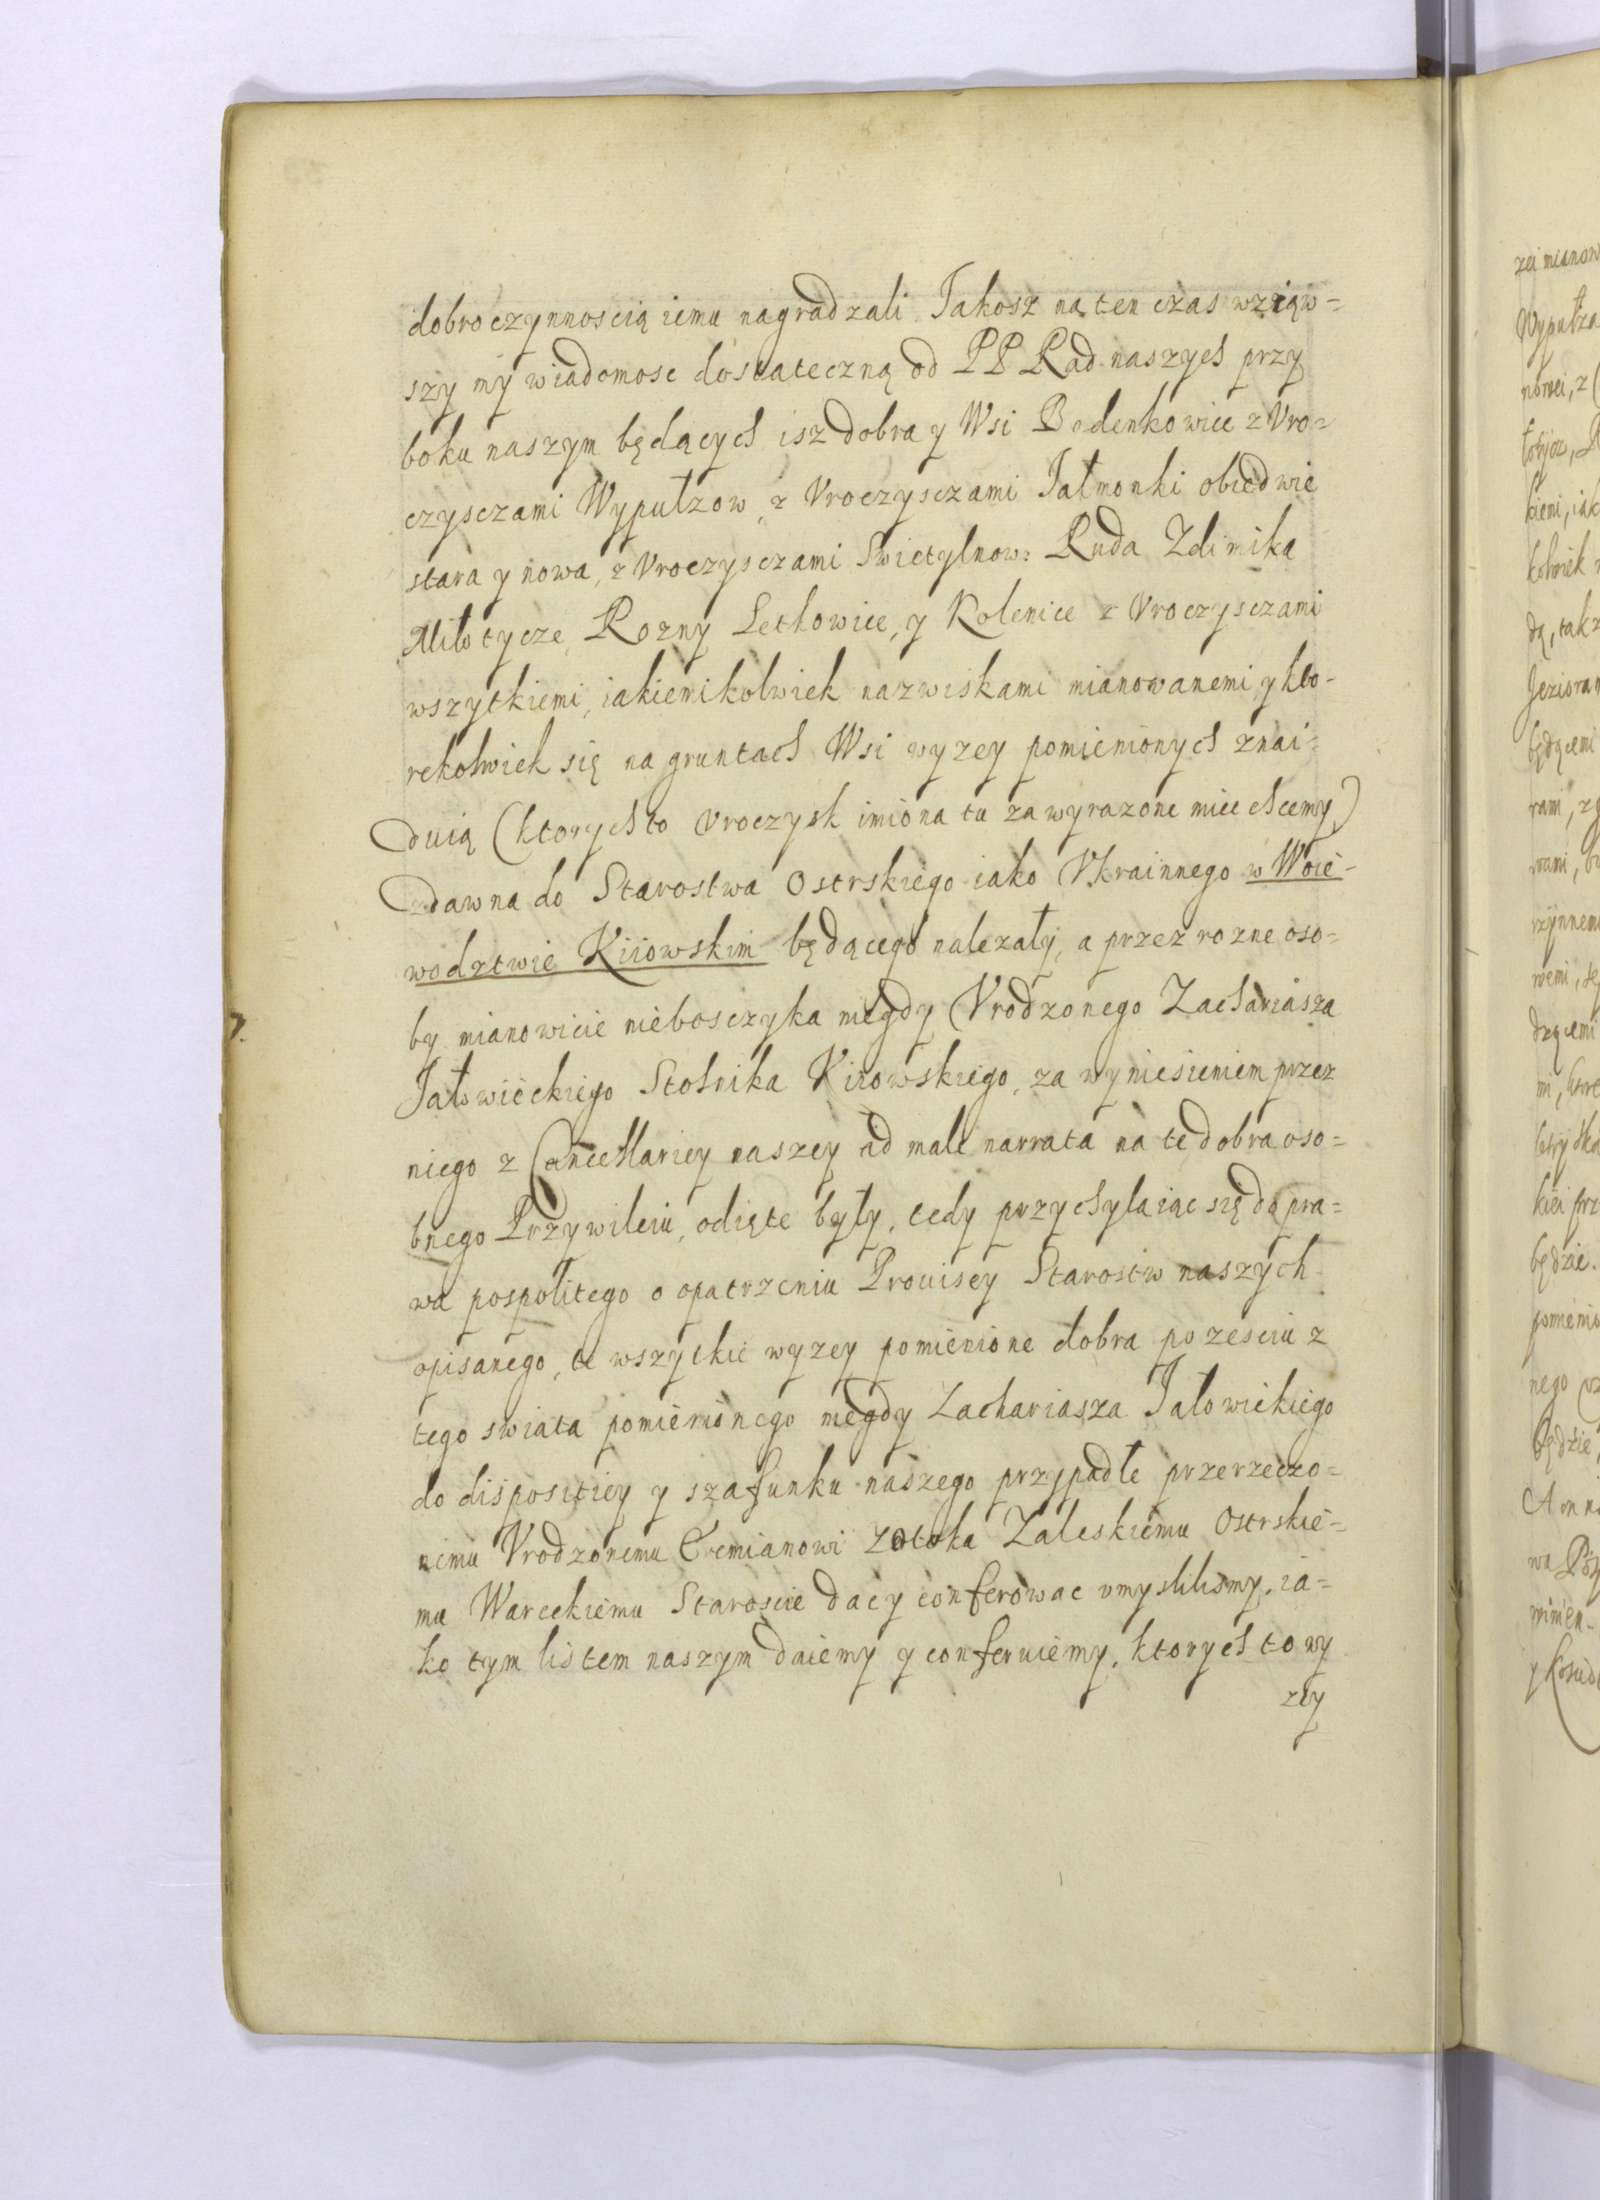 dobroczynnoscią iemu nagradzali. Jakosz na ten czas wziąw=
szy my wiadomosc dostateczną od PP Rad naszych przy
boku naszym będących isz dobra y Wsi Bodenkowice z Vro=
czysczami Wypułzow, z Vroczysczami Jałmonki obiedwie
stara y nowa, z Vroczysczami Swietylnow: Ruda Zdimika
Miłotycze, Rozny Letkowice, y Kolenice z Vroczysczami
wszytkiemi, iakiemikolwiek nazwiskami mianowanemi y kto-
rekolwiek się na gruntach Wsi wyzey pomienionych znai=
duią (ktorych to vroczysk imiona tu za wyrazone miec chcemy)
zdawna do Starostwa Ostrskiego iako Vkrainnego w Woie-
wodztwie Kiiowskim będącego nalezały, a przez rozne oso=
by mianowicie nieboszczyka niegdy Vrodzonego Zachariasza
7.
Jałowieckiego Stolnika Kiiowskiego, za wyniesieniem przez
niego z Cancellariey naszey ad male narrata na te dobra oso=
bnego Przywileiu, odięte były, tedy przychylaiąc się do pra=
wa pospolitego o opatrzeniu Prouisey Starostw naszych
opisanego, te wszytkie wyzey pomienione dobra po zesciu z
tego swiata pomienionego niegdy Zachariasza Jałowickiego
do dispositiey y szafunku naszego przypadłe przerzeczo=
nemu Vrodzonemu Eremianowi Zotoka Zaleskiemu Ostrskie=
mu Wareckiemu Staroscie dac y conferowac vmyslilismy, ia=
ko tym listem naszym daiemy y conferuiemy, ktorych to wy
zey